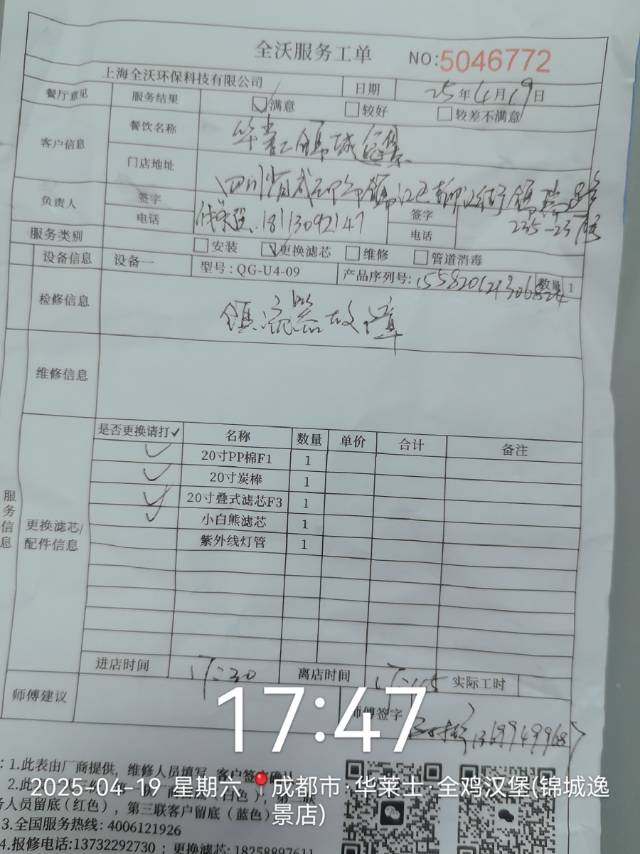 全沃服务工单 NO:5046772
上海全沃环保科技有限公司 日期 25年4月19日
餐厅意见 服务结果 ☑满意 □较好 □较差不满意
客户信息 餐饮名称
门店地址 四川省成都市锦江区
负责人 签字 签字
电话 18113092147 电话
服务类别 □安装 ☑更换滤芯 □维修 □管道消毒
设备信息 设备一 型号:QG-U4-09 产品序列号: 数量 1
检修信息 镇流器故障
维修信息
服务信息 更换滤芯/配件信息
是否更换请打✓ 名称 数量 单价 合计 备注
✓ 20寸PP棉F1 1
✓ 20寸炭棒 1
✓ 20寸叠式滤芯F3 1
✓ 小白熊滤芯 1
紫外线灯管 1
进店时间 17:30 离店时间 实际工时
师傅建议 师傅签字
17:47
:1.此表由厂商提供，维修人员填写，客户签字确认
2025-04-19 星期六 成都市·华莱士·全鸡汉堡(锦城逸景店)
务人员留底（红色），第三联客户留底（蓝色）
3.全国服务热线: 4006121926
4.报修电话:13732292730；更换滤芯: 18258897611